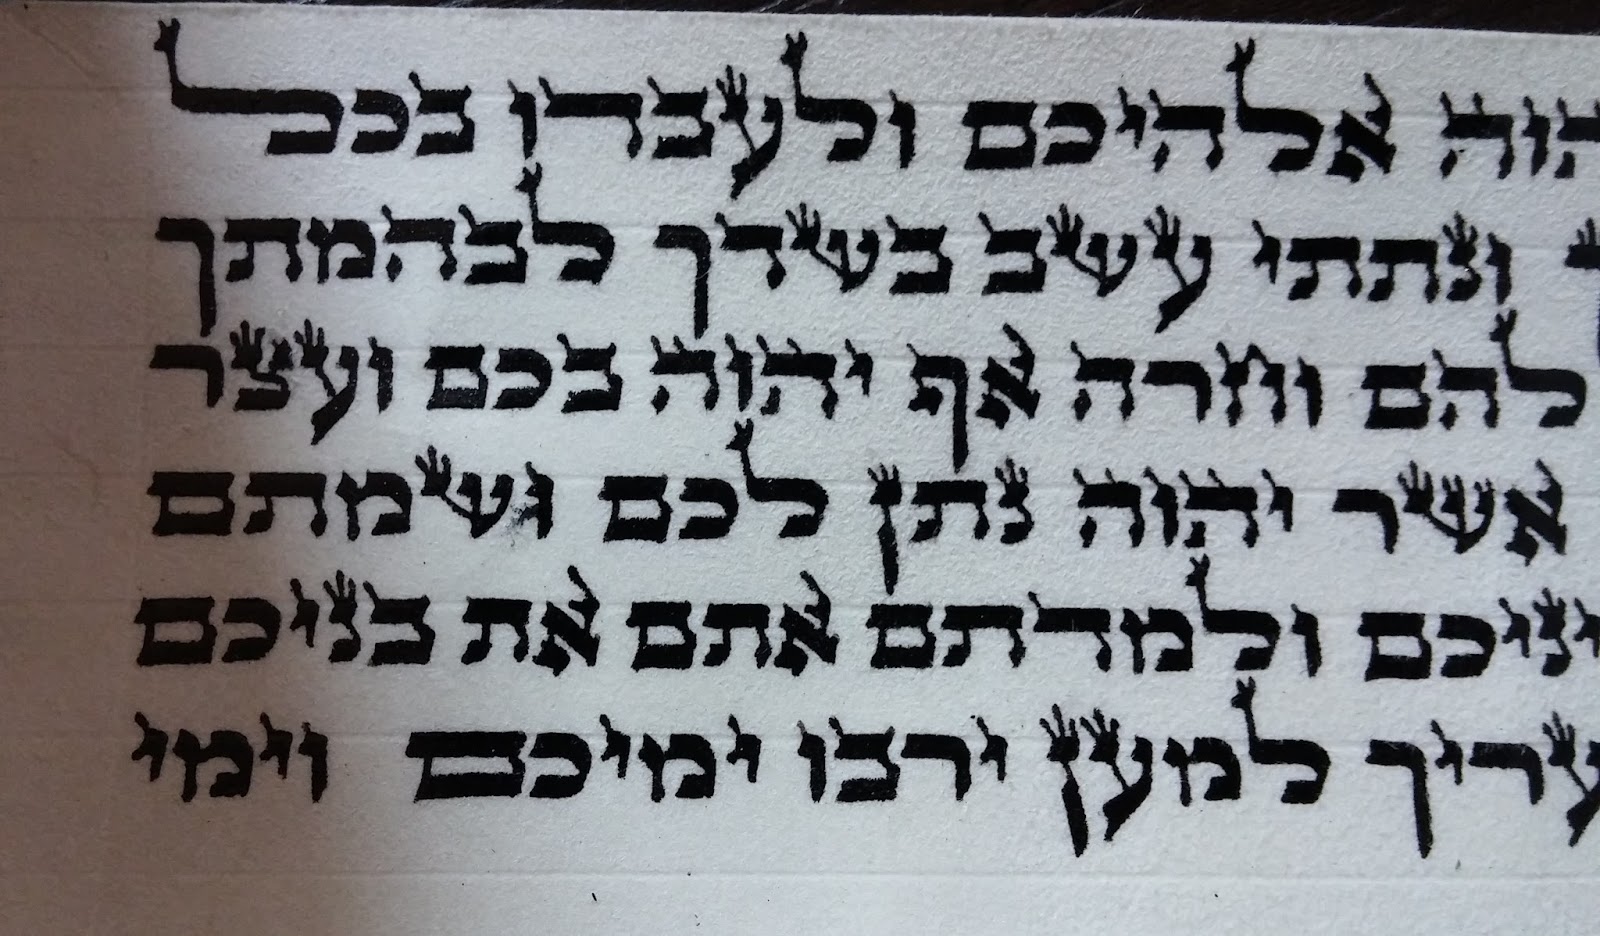 הוה אלהיכם ולעבדו בכל
ונתתי עשב בשדך לבהמתך
להם וחרה אף יהוה בכם ועצר
אשר יהוה נתן לכם ושמתם
יניכם ולמדתם אתם את בניכם
עריך למען ירבו ימיכם וימי